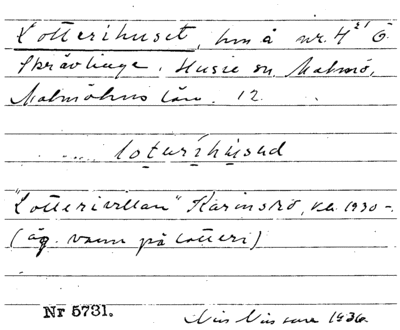 Lotterihuset, hm å nr. 4²¹ Ö.
Skrävlinge. Husie sn, Malmö,
Malmöhus län. 12.
loturíhùsud
"Lotterivillan" Karinsro, kb. 1930-.
(äg. vann på lotteri)
Nr 5731.
Nils Nilsson 1936.